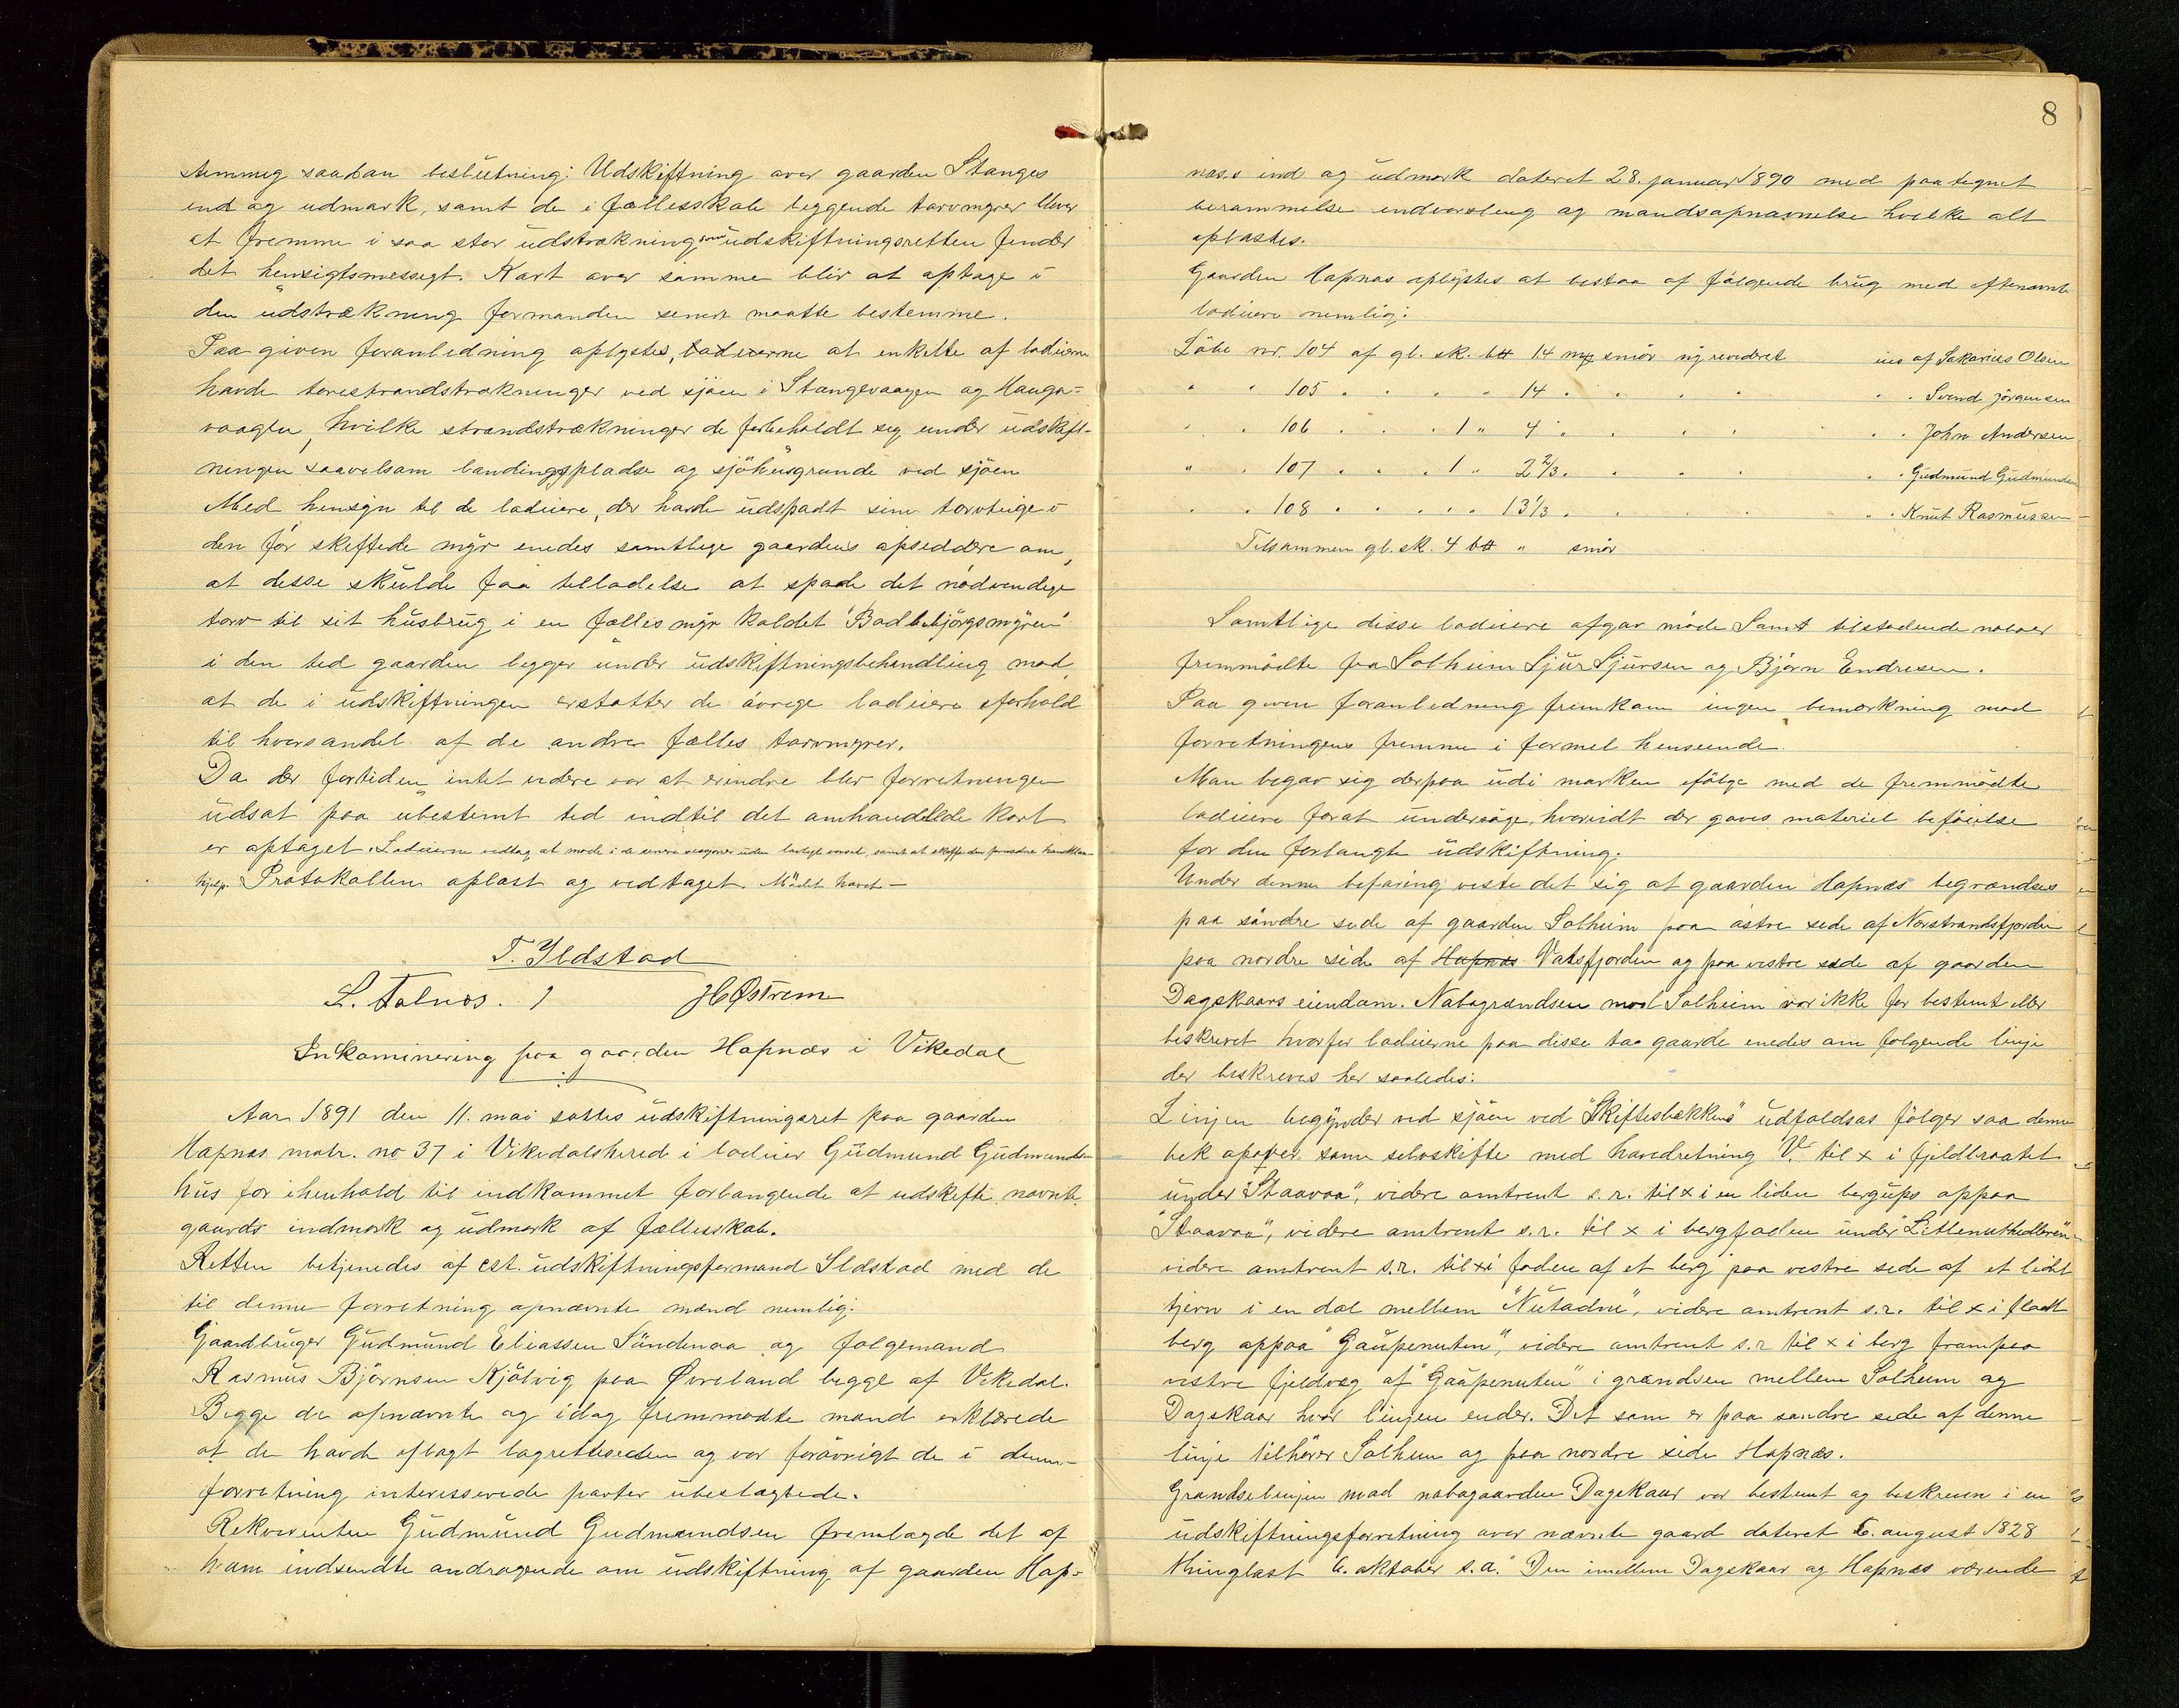 stemmig saadan beslutning: Udskiftning over gaarden Stanges
ind og udmark, samt de i fællesskab liggende torvmyrer bliver
at fremme i saa stor udstrækning som udskiftningsretten finder
det hensigtsmessigt. Kart over samme blir at optage i
den udstrækning formanden senere maatte bestemme.
Paa given foranledning oplystes, lodeierne at enkelte af lodeierne
havde torvestrandstrækninger ved sjøen i Stangevaagen og Hauga-
vaagen, hvilke strandstrækninger de forbeholdt sig under udskift-
ningen saavelsom landingspladse og sjöhusgrunde ved sjöen
Med hensyn til de lodeiere, der havde udspadt sine torvteige i
den för skiftede myr enedes samtlige gaardens opsiddere om,
at disse skulde faa tilladelse at spade det nödvendige
torv til sit husbrug i en fælles myr kaldet "Badlebjörgsmyren"
i den tid gaarden ligger under udskiftningsbehandling mod,
at de i udskiftningen erstatter de övrige lodeiere iforhold
til hversandel af de andre fælles torvmyrer.
Da der fortiden intet videre var at erindre blev forretningen
udsat paa ubestemt tid indtil det omhandlede kart
er optaget. Lodeierne vedtog at møde i de senere sessioner uden lovligt varsel, samt at skaffe den fornødne haandtlan-
hjelp. Protokollen oplæst og vedtaget. Mödet hævet —
T. Ildstad
L. Folnes. / H Østrem
Inkaminering paa gaarden Hapnæs i Vikedal
Aar 1891 den 11. mai sattes udskiftningsret paa gaarden
Hapnæs matr. no 37 i Vikedalsherred i lodeier Gudmund Gudmunds-
hus for ihenhold til indkommet forlangende at udskifte nævnte
gaards indmark og udmark af fællesskab.
Retten betjenedes af cst. udskiftningsformand Ildstad med de
til denne forretning opnævnte mænd nemlig:
Gaardbruger Gudmund Eliassen Söndenaa og folgemand
Rasmus Björnsen Kjölvig paa Øvreland begge af Vikedal.
Begge de opnævnte og idag fremmødte mænd erklærede
at de havde aflagt lagretteseden og var forövrigt de i denne
forretning interesserede parter ubeslagtede.
Rekvirenten Gudmund Gudmundsen fremlagde det af
ham indsendte andragende om udskiftning af gaarden Hap-
8
næs.s ind og udmark dateret 28. januar 1890 med paategnet
berammelse indvarsling og mandsopnævnelse hvilke alt
oplæstes.
Gaarden Hapnæs oplystes at bestaa af fölgende brug med eftenævnte
lodeiere nemlig:
Löbe nr. 104 af gl. sk. btt 14 mrk smör ny revideret eies af Sakarias Olsen
" " 105 . . . " 14 . . . . . . Svend Jörgensen
" " 106 . . . 1 " 4 . . . . . . John Andersen
" " 107 . . . 1 " 2 2/3 . . . . . . Gudmund Gudmundsen
" " 108 . . . . . 13 1/3 . . . . . . Knut Rasmussen
Tilsammen gl. sk. 4 btt " smör
Samtlige disse lodeiere afgav möde Samt tilstødende naboer
fremmödte fra Solheim Sjur Sjursen og Björn Endresen.
Paa given foranledning fremkom ingen bemærkning mod
forretningens fremme i formel henseende.
Man begav sig derpaa udi marken ifölge med de fremmödte
lodeiere forat undersöge, hvorvidt der gaves materiel beföielse
for den forlangte udskiftning.
Under denne befaring viste det sig at gaarden Hapnæs begrændses
paa söndre side af gaarden Solheim paa östre side af Nærstrandsfjorden
paa nordre side af Hapnæs Vatsfjorden og paa vestre side af gaarden
Dagskaars eiendom. Nabogrændsen mod Solheim var ikke før bestemt eller
beskrevet hvorfor lodeierne paa disse too gaarde enedes om følgende linje
der beskrives her saaledes:
Linjen begynder ved sjöen ved "Skiftesbækkens" udfaldsos fölger saa denne
bæk opover som selvskifte med hovedretning V. til x i fjeldbraatet
under "Staavaa", videre omtrent s.r. til x i en liden bergups oppaa
"Staavaa", videre omtrent s.r. til x i bergfoden under "Litlenuthedleren"
videre omtrent s.r. til x i foden af et berg paa vestre side af et lidet
tjern i en dal mellem "Nutadne", videre omtrent s.r. til x i fladt
berg oppaa "Gaupenuten", videre omtrent s.r til x i berg frampaa
vestre fjeldvæg af "Gaupenuten" i grændsen mellem Solheim og
Dagskaar hvor linjen ender. Det som er paa søndre side af denne
linje tilhörer Solheim og paa nordre side Hapnæs.
Grændselinjen mod nabogaarden Dagskaar var bestemt og beskreven i en
udskiftningsforretning over nævnte gaard dateret 6. august 1828
thinglæst 6. oktober s.a. "Den imellem Dagskaar og Hapnæs værende